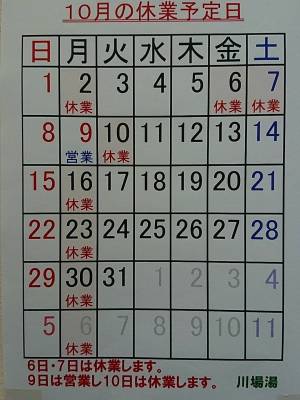 10月の休業予定日
日 月 火 水 木 金 土
1 2 3 4 5 6 7
休業 休業 休業
8 9 10 11 12 13 14
営業 休業
15 16 17 18 19 20 21
休業
22 23 24 25 26 27 28
休業
29 30 31 1 2 3 4
休業
5 6 7 8 9 10 11
休業
6日・7日は休業します。
9日は営業し10日は休業します。 川場湯